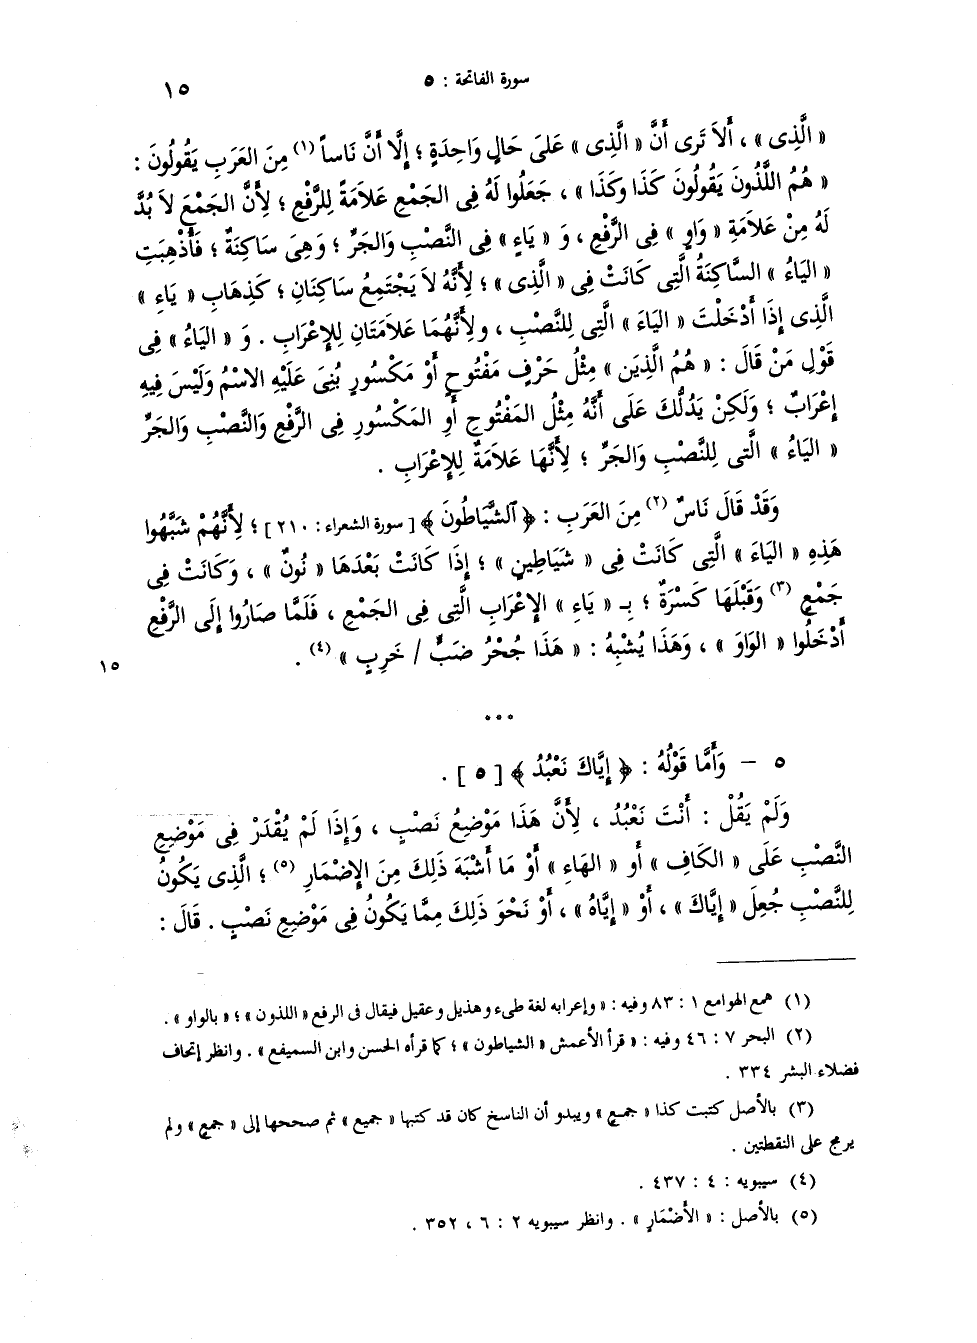 سورة الفاتحة : ٥
١٥
« الَّذِى » ، أَلاَ تَرى أَنَّ « الَّذِى » عَلىَ حَالٍ وَاحِدَةٍ ؛ إِلَّا أَنَّ نَاساً (١) مِنَ العَرَبِ يَقُولُونَ :
« هُمُ اللَّذُونَ يَقُولُونَ كَذَا وكَذَا » ، جَعَلُوا لَهُ فِى الجَمْعِ عَلاَمَةً لِلرَّفْعِ ؛ لِأَنَّ الجَمْعَ لاَ بُدَّ
لَهُ مِنْ عَلاَمَةِ « وَاوٍ » فِى الرَّفْعِ ، وَ « يَاءٍ » فِى النَّصْبِ وَالجَرِّ ؛ وَهِىَ سَاكِنَةٌ ؛ فَأُذْهِبَتِ
« اليَاءُ » السَّاكِنَةُ الَّتِى كَانَتْ فِى « الَّذِى » ؛ لِأَنَّهُ لاَ يَجْتَمِعُ سَاكِنَانِ ؛ كَذِهَابِ « يَاءِ »
الَّذِى إِذَا أَدْخَلْتَ « اليَاءَ » الَّتِى لِلنَّصْبِ ، ولِأَنَّهُمَا عَلاَمَتَانِ لِلإِعْرَابِ . وَ « اليَاءُ » فِى
قَوْلِ مَنْ قَالَ : « هُمُ الَّذِيَن » مِثْلُ حَرْفٍ مَفْتُوحٍ أَوْ مَكْسُورٍ بُنِىَ عَلَيْهِ الاسْمُ وَلَيْسَ فِيهِ
إِعْرَابٌ ؛ وَلَكِنْ يَدُلُّكَ عَلَى أَنَّهُ مِثْلُ المَفْتُوحِ أَوِ المَكْسُورِ فِى الرَّفْعِ وَالنَّصْبِ وَالجَرِّ
« اليَاءُ » الَّتى لِلنَّصْبِ وَالجَرِّ ؛ لِأَنَّهَا عَلاَمَةٌ لِلإِعْرَابِ .
وَقَدْ قَالَ نَاسٌ (٢) مِنَ العَرَبِ : ﴿ ٱلشَّيَاطُونَ ﴾ [ سورة الشعراء : ٢١٠ ] ؛ لِأَنَّهُمْ شَبَّهُوا
هَذِهِ « اليَاءَ » الَّتِى كَانَتْ فِى « شَيَاطِينٍ » ؛ إِذَا كَانَتْ بَعْدَهَا « نُونٌ » ، وَكَانَتْ فِى
جَمْعٍ (٣) وَقَبْلَهَا كَسْرَةٌ ؛ بِـ « يَاءِ » الإِعْرَابِ الَّتِى فِى الجَمْعِ ، فَلَمَّا صَارُوا إِلَى الرَّفْعِ
أَدْخَلُوا « الوَاوَ » ، وَهَذَا يُشْبِهُ : « هَذَا جُحْرُ ضَبٍّ / خَرِبٍ » (٤) .
١٥
...
٥ – وَأَمَّا قَوْلُهُ : ﴿ إِيَّاكَ نَعْبُدُ ﴾ [ ٥ ] .
وَلَمْ يَقُلْ : أَنْتَ نَعْبُدُ ، لِأَنَّ هَذَا مَوْضِعُ نَصْبٍ ، وَإِذَا لَمْ يُقْدَرْ فِى مَوْضِعِ
النَّصْبِ عَلَى « الكَافِ » أَو « الهَاءِ » أَوْ مَا أَشْبَهَ ذَلِكَ مِنَ الإِضْمَارِ (٥) ؛ الَّذِى يَكُونُ
لِلنَّصْبِ جُعِلَ « إِيَّاكَ » ، أَوْ « إِيَّاهُ » ، أَوْ نَحْوَ ذَلِكَ مِمَّا يَكُونُ فِى مَوْضِعِ نَصْبٍ . قَالَ :
(١) همع الهوامع ١ : ٨٣ وفيه : « وإعرابه لغة طىء وهذيل وعقيل فيقال فى الرفع « اللذون » ؛ « بالواو » .
(٢) البحر ٧ : ٤٦ وفيه : « قرأ الأعمش « الشياطون » ؛ كما قرأه الحسن وابن السميفع » . وانظر إتحاف
فضلاء البشر ٣٣٤ .
(٣) بالأصل كتبت كذا « جمـعٍ » ويبدو أن الناسخ كان قد كتبها « جميع » ثم صححها إلى « جمعٍ » ولم
يرمج على النقطتين .
(٤) سيبويه : ٤ : ٤٣٧ .
(٥) بالأصل : « الأَضْمَارِ » . وانظر سيبويه ٢ : ٦ ، ٣٥٢ .